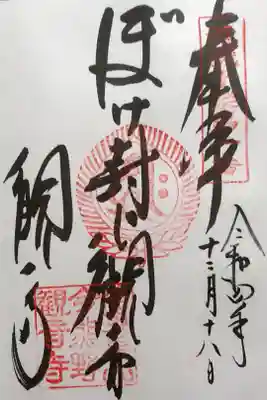 奉拝
令和四年
十二月十八日
ぼけ封じ観音
観音寺
今熊野
觀音寺